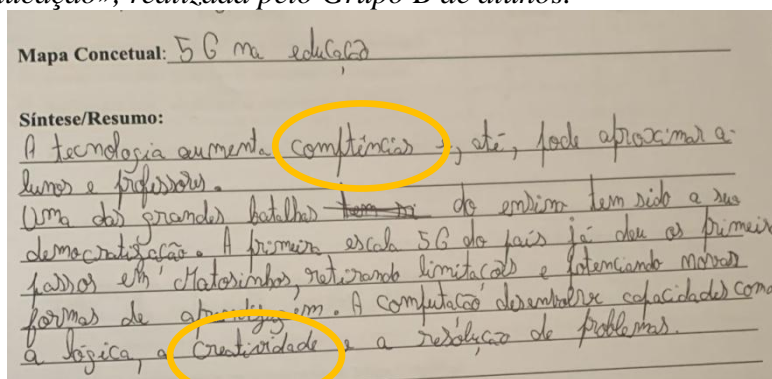 ducação», realizada pelo Grupo B de alunos.
Mapa Concetual: 5 G na educação
Síntese/Resumo:
A tecnologia aumenta comptências e, até, pode aproximar a-
lunos e professores.
Uma das grandes batalhas do ensino tem sido a sua
democratização. A primeira escola 5G do país já deu os primeir
passos em Matosinhos, retirando limitações e potenciando novas
formas de aprendizagem. A computacão desenvolve capacidades como
a lógica, a creatividade e a resolução de problemas.